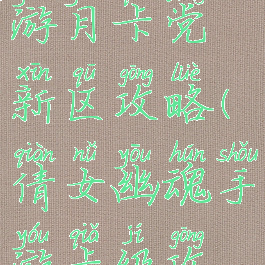 游月卡党
xīn qū gōng lüè
新区攻略(
qiàn nǚ yōu hún shǒu
倩女幽魂手
yóu qiǎ jí gōng
游卡级攻